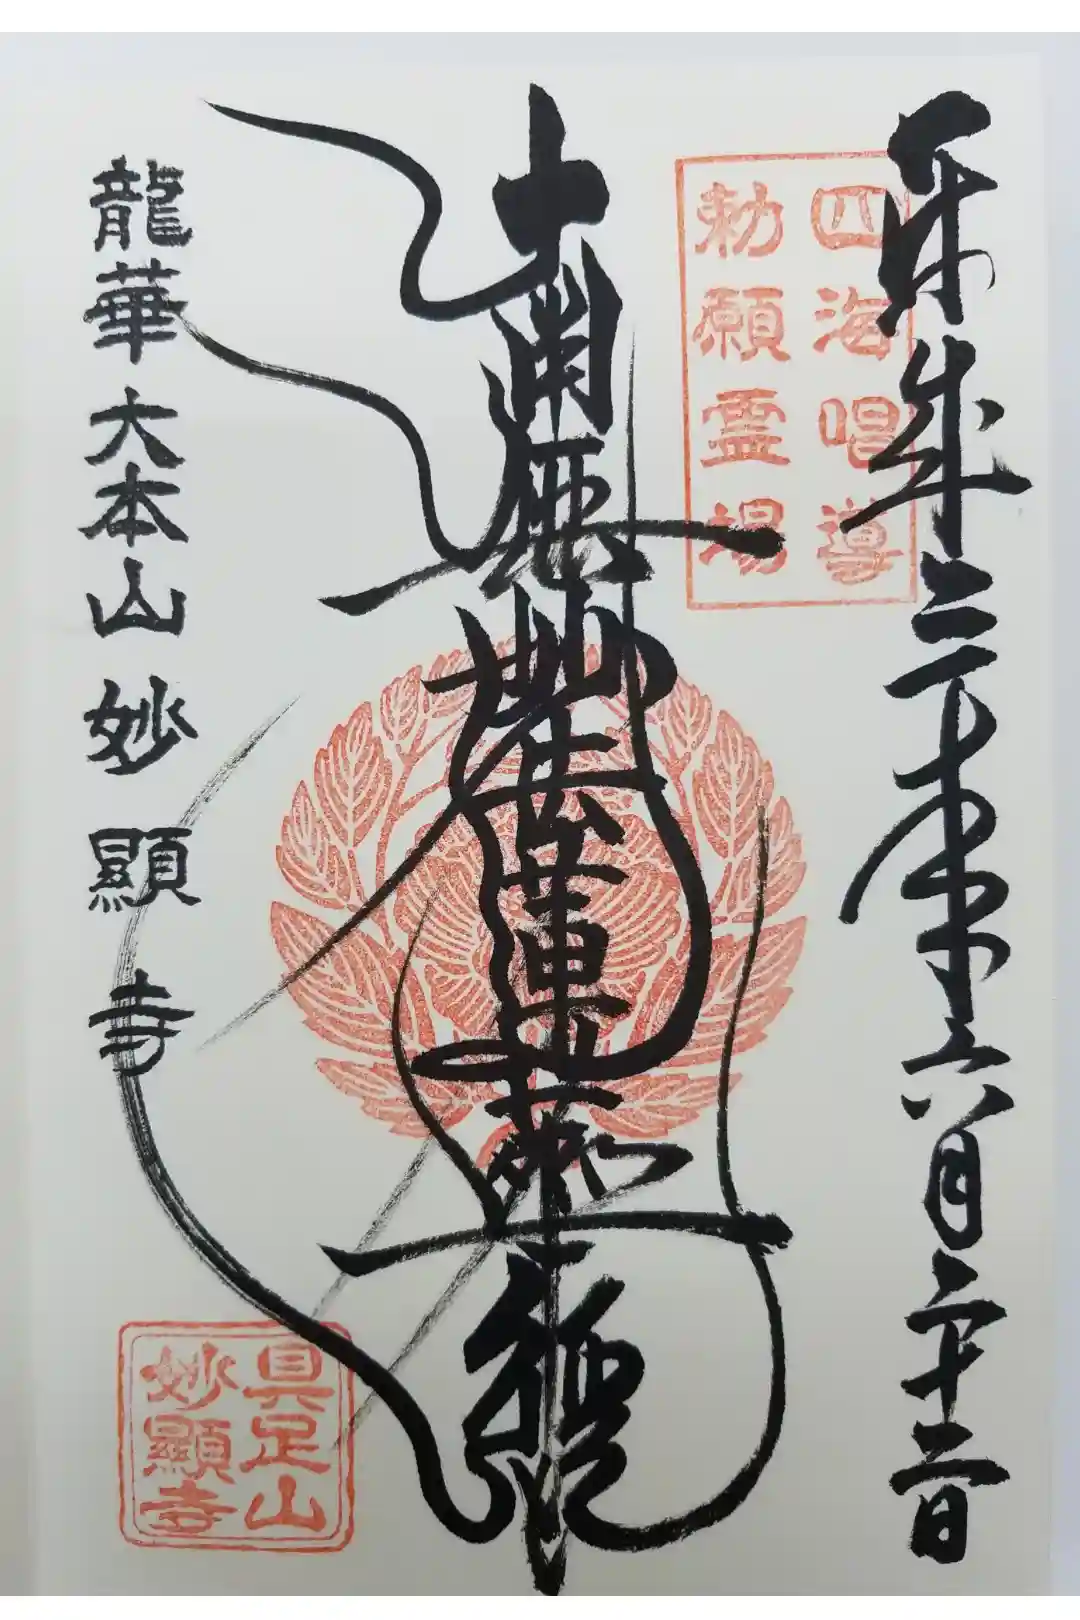 平成三十年六月二十二日
四海唱導
勅願霊場
南無妙法蓮華経
龍華大本山妙顯寺
具足山
妙顯寺